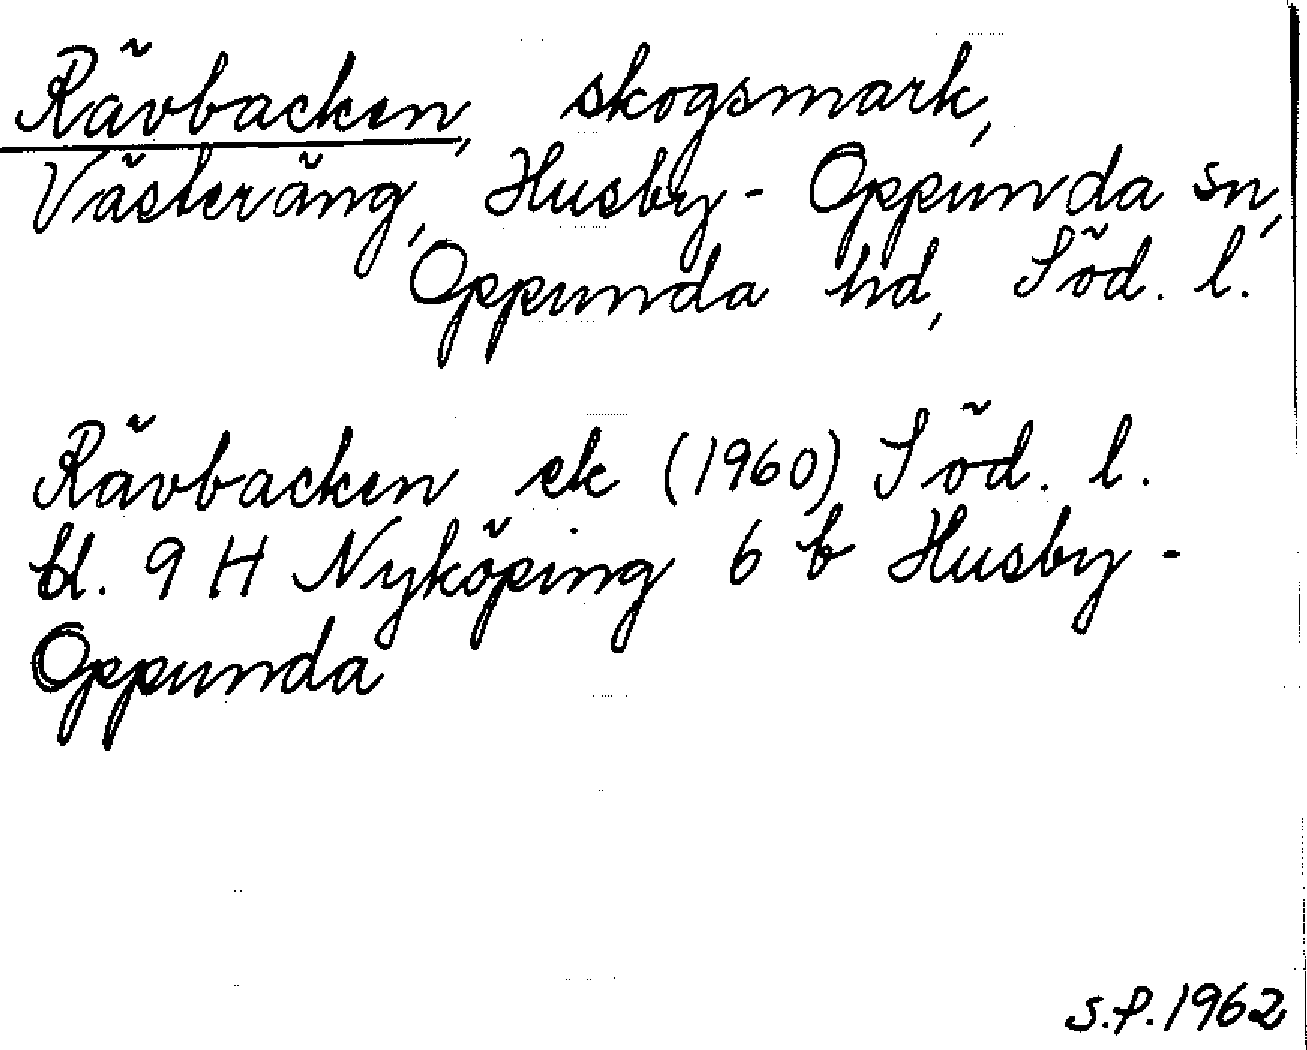 Rävbacken, skogsmark,
Västeräng, Husby-Oppunda sn,
Oppunda hd, Söd. l.
Rävbacken ek (1960) Söd. l.
bl. 9 H Nyköping 6 b Husby-
Oppunda
S.P. 1962